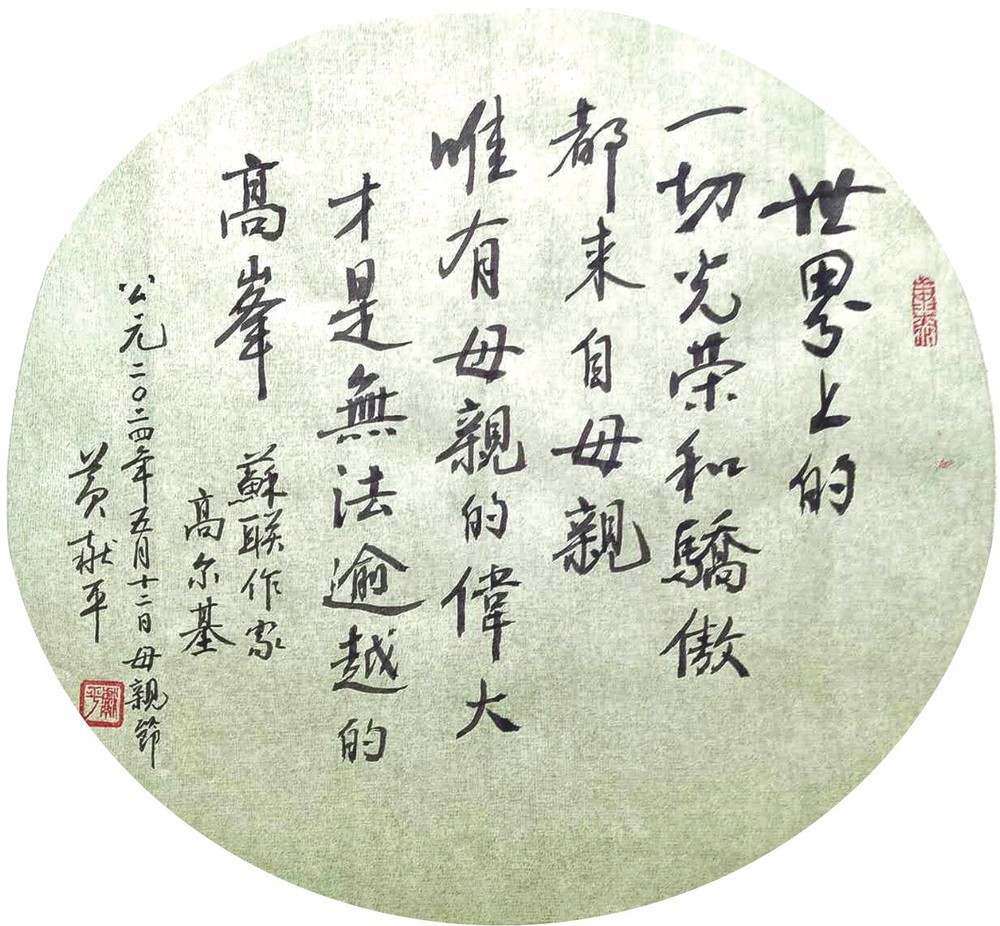 世界上的
一切光荣和驕傲
都来自母親
唯有母親的偉大
才是無法逾越的
高峯
蘇联作家
高尔基
公元二〇二四年五月十二日母親節
黄献平